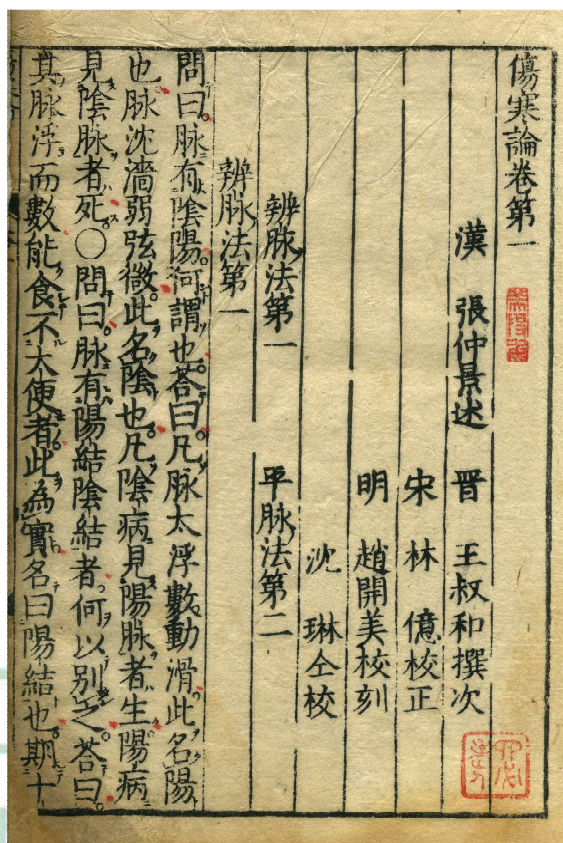 傷寒論卷第一
漢　張仲景述　晋　王叔和撰次
宋　林　億校正
明　趙開美校刻
沈　琳仝校
辨脉法第一　平脉法第二
辨脉法第一
問曰脉有陰陽何謂也荅曰凡脉大浮數動滑此名陽
也脉沈濇弱弦微此名陰也凡陰病見陽脉者生陽病
見陰脉者死〇問曰脉有陽結陰結者何以別之荅曰
其脉浮而數能食不大便者此為實名曰陽結也期十